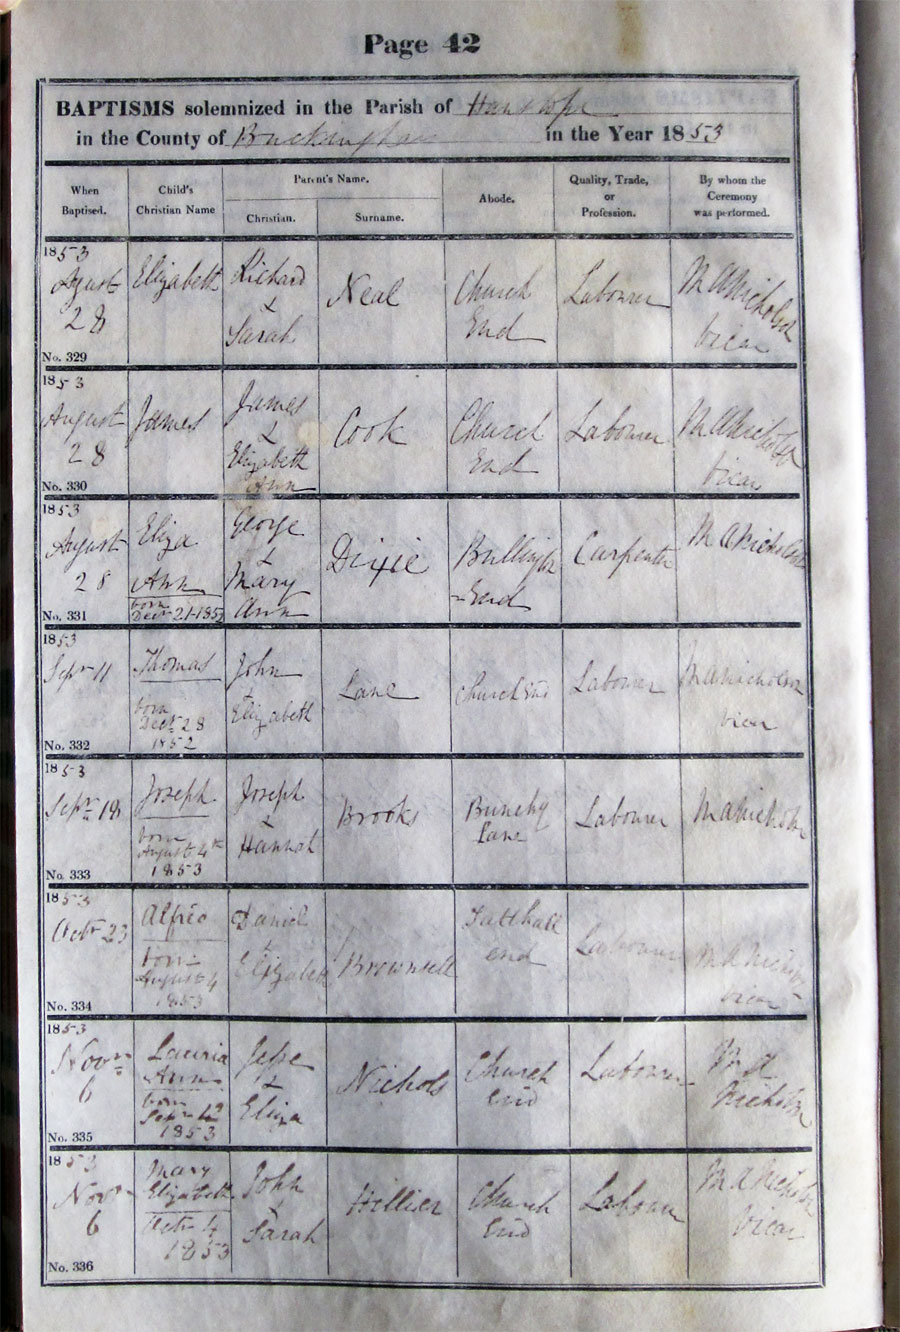 Page 42
BAPTISMS solemnized in the Parish of Hanslope
in the County of Buckingham in the Year 1853
When
Baptised.
Child's
Christian Name
Parent's Name.
Christian.
Surname.
Abode.
Quality, Trade,
or
Profession.
By whom the
Ceremony
was performed.
1853
August
28
No. 329
Elizabeth
Richard
&
Sarah
Neal
Church
End
Labourer
M A Nicholson
Vicar
1853
August
28
No. 330
James
James
&
Elizabeth
Ann
Cook
Church
End
Labourer
M A Nicholson
Vicar
1853
August
28
No. 331
Eliza
Ann
born
Decr 21-1852
George
&
Mary
Ann
Dixie
Bullington
End
Carpenter
M A Nicholson
1853
Sepr 11
No. 332
Thomas
born
Decr 28
1852
John
&
Elizabeth
Lane
Church End
Labourer
M A Nicholson
Vicar
1853
Sepr 18
No. 333
Joseph
born
August 4th
1853
Joseph
&
Hannah
Brooks
Lane
Labourer
M A Nicholson
1853
Octr 23
No. 334
Alfred
born
August 4
1853
Daniel
&
Elizabeth
Brownsell
Tatthall
end
Labourer
M A Nicholson
Vicar
1853
Novr
6
No. 335
Lauria
Ann
born
Sepr
1853
Jesse
&
Eliza
Nichols
Church
End
Labourer
M A
Nicholson
1853
Novr
6
No. 336
Mary
Elizabeth
Octr 4
1853
John
&
Sarah
Hillier
Church
End
Labourer
M A Nicholson
Vicar